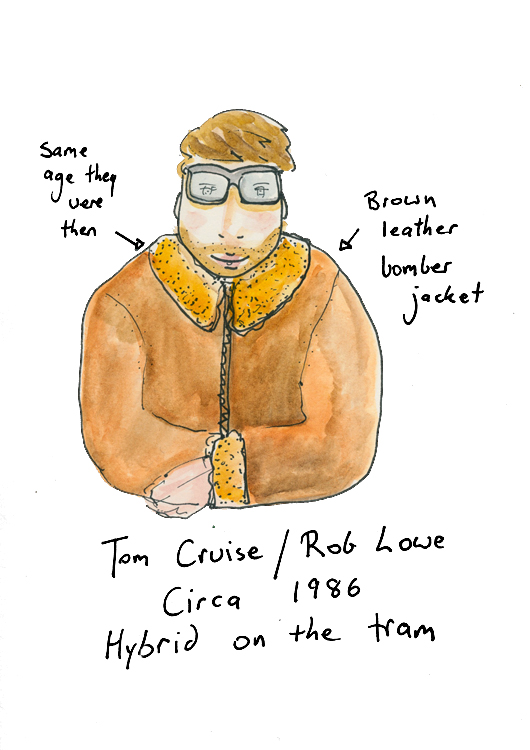 Same
age they
were
then
Brown
leather
bomber
jacket
Tom Cruise / Rob Lowe
Circa 1986
Hybrid on the tram